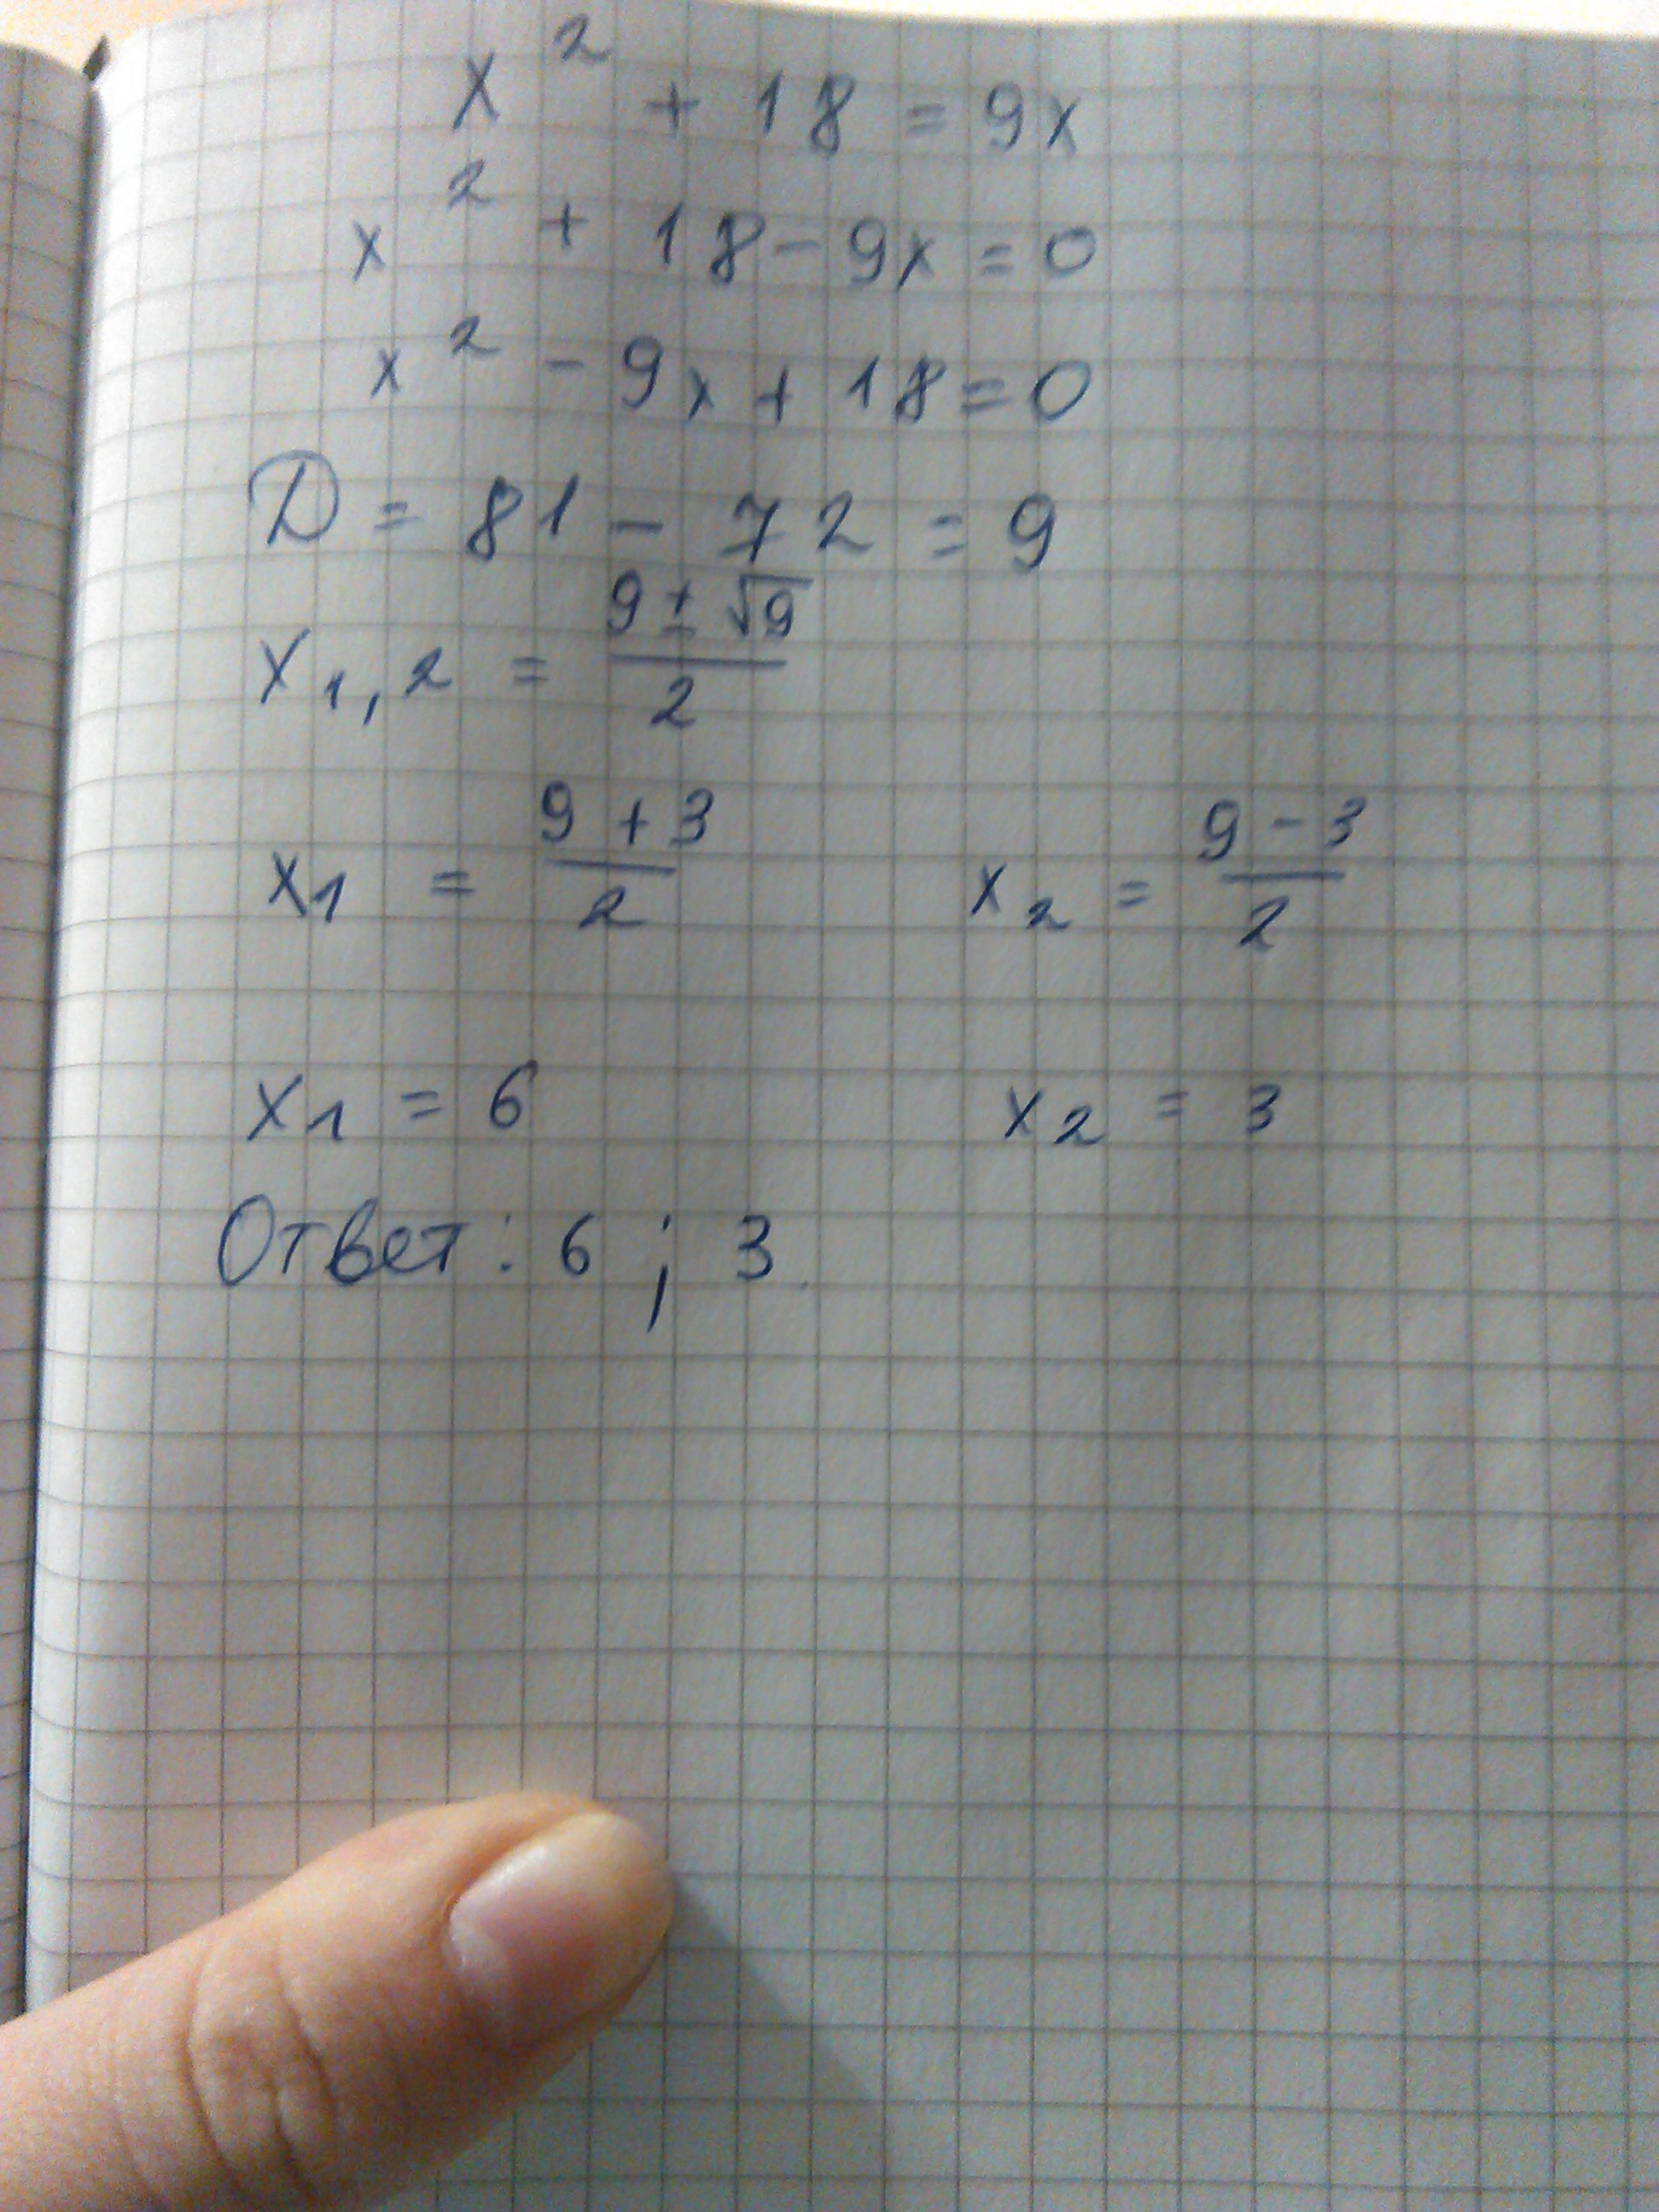 x² + 18 = 9x
x² + 18 - 9x = 0
x² - 9x + 18 = 0
D = 81 - 72 = 9
x₁,₂ = (9 ± √9)/2
x₁ = (9 + 3)/2    x₂ = (9 - 3)/2
x₁ = 6    x₂ = 3
Ответ: 6 ; 3.